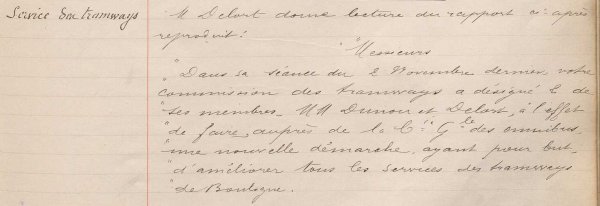 Service des tramways
M Delort donne lecture du rapport ci-après
reproduit :
"Messieurs
"Dans sa séance du 2 Novembre dernier, votre
commission des tramways a désigné 2 de
"ses membres MM Dunoir et Delort, à l'effet
"de faire, auprès de la Cie Gle des omnibus,
"une nouvelle démarche, ayant pour but
"d'améliorer tous les services des tramways
"de Boulogne.